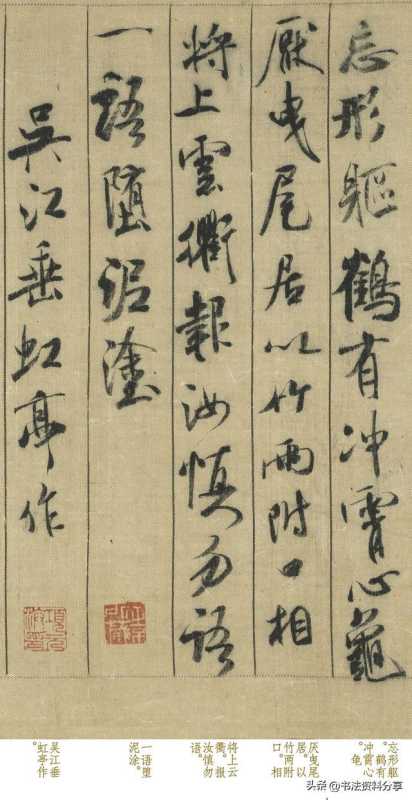 忘形軀鶴有冲霄心龜
厭曳尾居以竹兩附口相
將上雲衢報汝慎勿語
一語墮泥塗
吳江垂虹亭作
忘形躯
。鹤有
冲霄心
。龟
厌曳尾
居。以
竹两附
口。相
将上云
衢。报
汝慎勿
语。
一语堕
泥涂。
吴江垂
虹亭作
。
头条 @书法资料分享